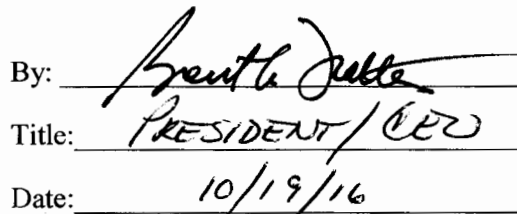 By:
Title: PRESIDENT/CEO
Date: 10/19/16